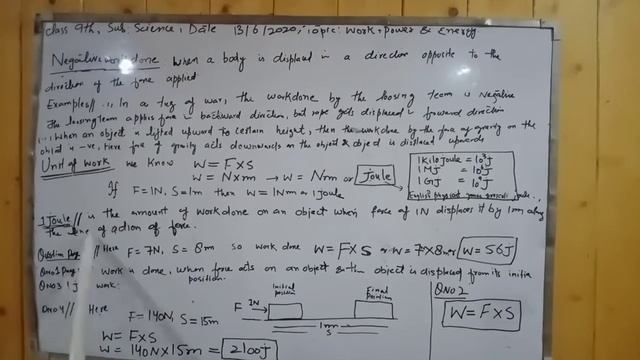 Class 9th, Sub, Science, Date 13/6/2020, Topic: Work, Power & Energy
Negative work done When a body is displaced in a direction opposite to the
direction of the force applied
Examples// In a tug of war, the work done by the loosing team is negative
The loosing team applies force in backward direction, but rope gets displaced in forward direction
When an object is lifted upward to certain height, then the work done by the force of gravity on the
object is -ve, Here force of gravity acts downwards on the object & object is displaced upwards
Unit of work we know W = F×S
W = N×m → W = Nm or Joule
If F=1N, S=1m then W = 1Nm or 1 Joule
1 Kilo Joule = 10³J
1 MJ = 10⁶J
1 GJ = 10⁹J
1 Joule// is the amount of work done on an object when force of 1N displaces it by 1m along
the line of action of force.
Question // Here F = 7N, S = 8m so work done W = F×S W = 7×8 W = 56J
QNo1 Work is done, when force acts on an object & the object is displaced from its initial
position.
QNO3 1J work:
Initial position
Final position
F 1N
1m
S
QNo 2
W = F×S
QNo4// Here F = 140N, S = 15m
W = F×S
W = 140N×15m = 2100J